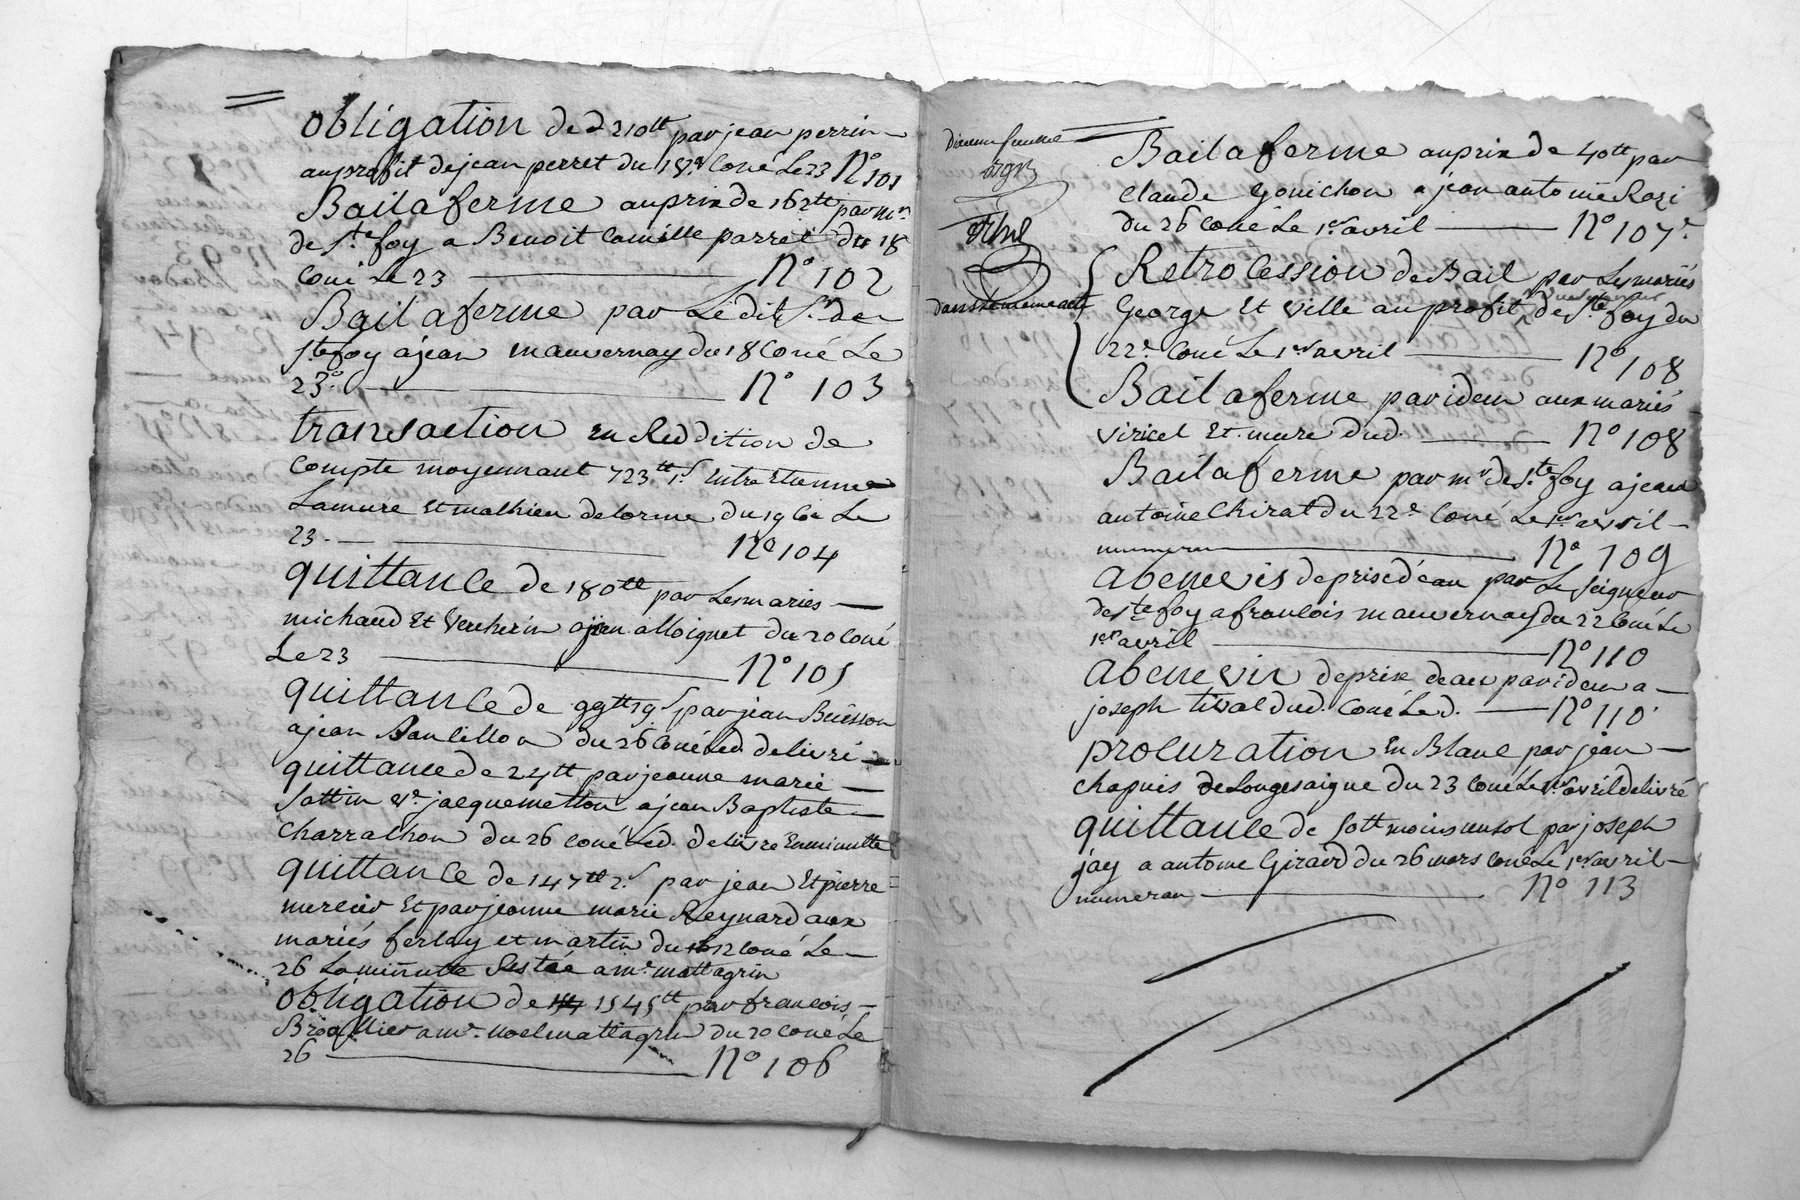 obligation de 210tt par jean perrin
au profit de jean perret du 18e coné Le 23 N° 101
Bail a ferme au prix de 162tt par mr
de Ste foy a Benoit Camille parret du 18
coné Le 23 N° 102
Bail a ferme par Ledit Sr de
Ste foy a jean mauvernay du 18 coné Le
23e N° 103
transaction En Reddition de
Compte moyennant 723tt 1s Entre Etienne
Lamure Et mathieu delorme du 19 Coné Le
23 N° 104
quittance de 180tt par Les maries
michaud Et Vercherin a jean alloignet du 20 coné
Le 23 N° 105
quittance de 99tt 19s par jean Buisson
a jean du 26 coné Led. delivré
quittance de 24tt par jeanne marie
Sottin ve jacquemetton a jean Baptiste
Charrathon du 26 coné Led. delivré En minutte
quittance de 147tt 2s par jean Et pierre
mercier Et par jeanne marie Reynard aux
mariés ferlay et martin du 12 coné Le
26 La minutte Restée a mr mattagrin
obligation de 1545tt par francois
a mr Noel mattagrin du 20 coné Le
26 N° 106
dans le meme acte
Bail a ferme au prix de 40tt par
Claude gonichon a jean antoine Rozi
du 26 coné Le 1er avril N° 107
Retrocession de Bail par Les mariés
George Et Ville au profit de Ste foy du
22e coné Le 1er avril N° 108
Bail a ferme par idem aux mariés
Viricel Et mure dud. N° 108
Bail a ferme par mr de Ste foy a jean
antoine Chirat du 22e coné Le 1er avril
numero N° 109
abenevis de prise d'eau par Le Seigneur
de Ste foy a francois mauvernay du 22 coné Le
1er avril N° 110
abenevis de prise deau par idem a
joseph tival dud. coné Led. N° 110
procuration En Blanc par jean
chapuis de Longesaigne du 23 coné Le 1er avril delivré
quittance de 50tt moins un sol par joseph
jay a antoine Giraud du 26 mars coné Le 1er avril
numero N° 113